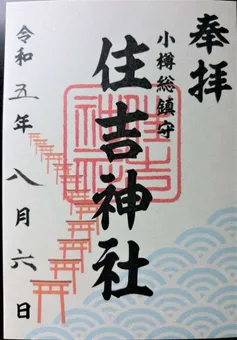 奉拝
小樽総鎮守
住吉神社
令和五年八月六日